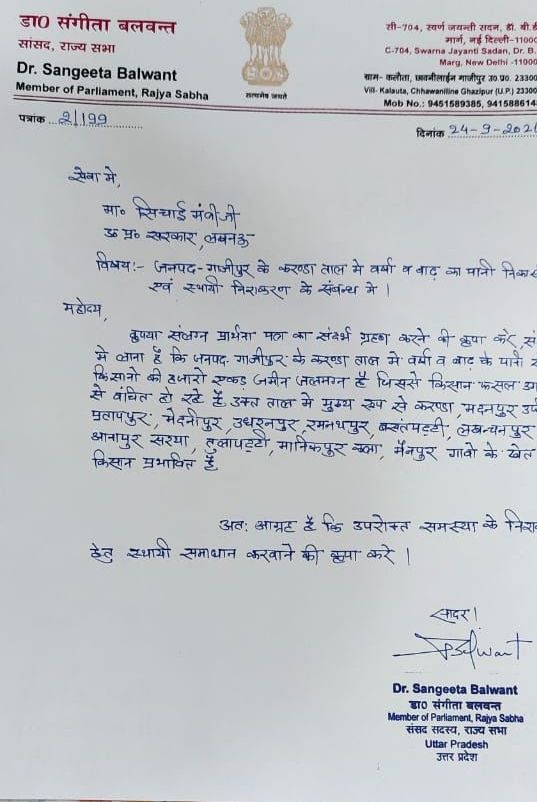 डा0 संगीता बलवन्त
सांसद, राज्य सभा
Dr. Sangeeta Balwant
Member of Parliament, Rajya Sabha
सत्यमेव जयते
सी-704, स्वर्ण जयन्ती सदन, डॉ. बी.डी
मार्ग, नई दिल्ली-11000
C-704, Swarna Jayanti Sadan, Dr. B.
Marg, New Delhi -11000
ग्राम- कलौता, छावनीलाईन गाजीपुर उ.प्र. 23300
Vill- Kalauta, Chhawaniline Ghazipur (U.P.) 23300
Mob No.: 9451589385, 941588614
पत्रांक 2/199
दिनांक 24-9-202
सेवा मे,
मा० सिचाई मंत्री जी
उ० प्र० सरकार, लखनऊ
विषय:- जनपद-गाजीपुर के करण्डा ताल मे वर्षा व बाढ़ का पानी
एवं स्थायी निराकरण के संबन्ध मे।
महोदय,
कृपया संलग्न प्रार्थना पत्र का संदर्भ ग्रहण करने की कृपा करे,
मे लाना है कि जनपद गाजीपुर के करण्डा ताल मे वर्षा व बाढ़ के पानी
किसानो की हजारो एकड़ जमीन जलमग्न है जिससे किसान फसल
से वंचित हो रहे है उक्त ताल मे मुख्य रुप से करण्डा, मदनपुर
प्रतापपुर, मेदनीपुर, उधरनपुर, रमनथपुर, बसंतपट्टी, लखनचनपुर
आनापुर सरया, तुलापट्टी, मानिकपुर कला, मैनपुर गावो के खेत
किसान प्रभावित है
अतः आग्रह है कि उपरोक्त समस्या के
हेतु स्थायी समाधान करवाने की कृपा करे।
सादर।
Dr. Sangeeta Balwant
डा0 संगीता बलवन्त
Member of Parliament, Rajya Sabha
संसद सदस्य, राज्य सभा
Uttar Pradesh
उत्तर प्रदेश